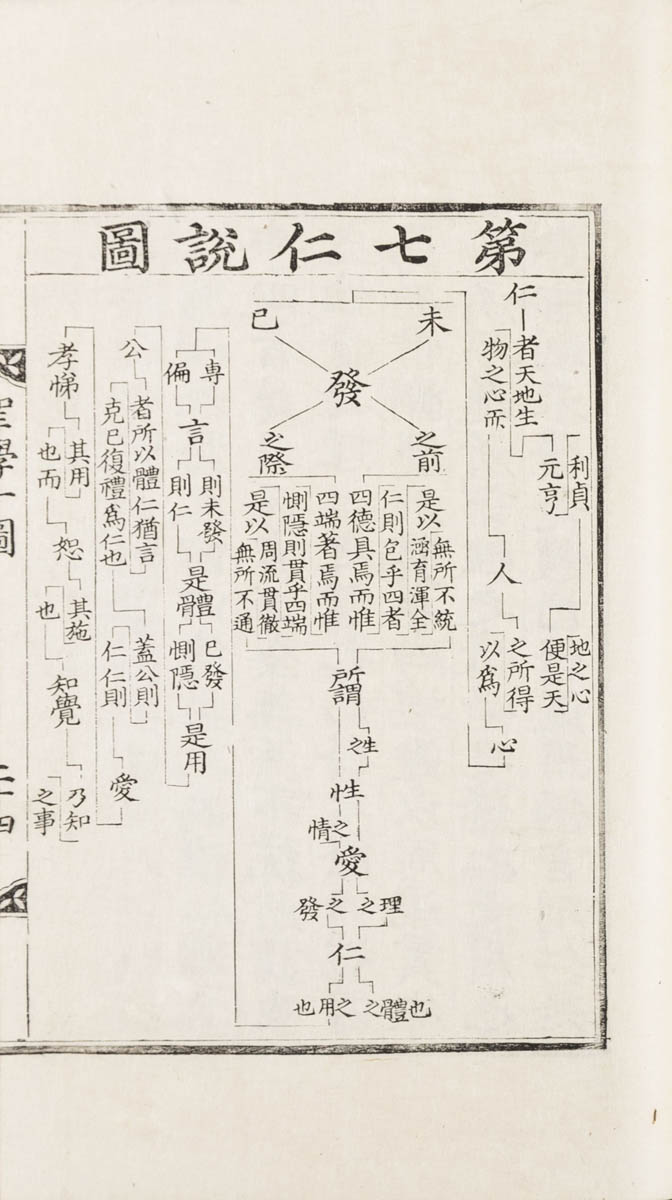 第七仁說圖
仁
者天地生
物之心而
利貞
元亨
地之心
便是天
人
之所得
以爲
心
未
已
發
之前
之際
是以
無所不統
涵育渾全
仁則包乎四者
四德具焉而惟
四端著焉而惟
惻隱則貫乎四端
是以
周流貫徹
無所不通
所謂
生之
性
之情
愛
理之
之發
仁
之體也
之用也
專
偏
言
則未發
則仁
是體
已發
惻隱
是用
公
者所以體仁猶言
克己復禮爲仁也
蓋公則
仁仁則
愛
孝悌
其用
也而
恕
其施
也
知覺
乃知
之事
聖學十圖
二十四